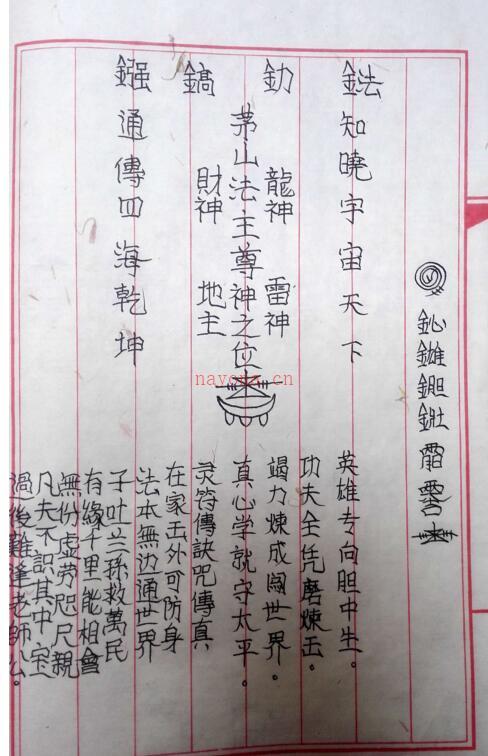 鈊
鍅知曉宇宙天下
釛龍神雷神
茅山法主尊神之位
鎬財神地主
鏹通傳四海乾坤
英雄专向胆中生。
功夫全凭磨煉玉。
竭力煉成闯世界。
真心学就守太平。
灵符傳訣咒傳真
在家玉外可防身
法本無边通世界
子吐兰孫救萬民
有緣千里能相會
無份虚劳咫尺親
凡夫不識其中宝
過後難逢老師公。
nayona.cn